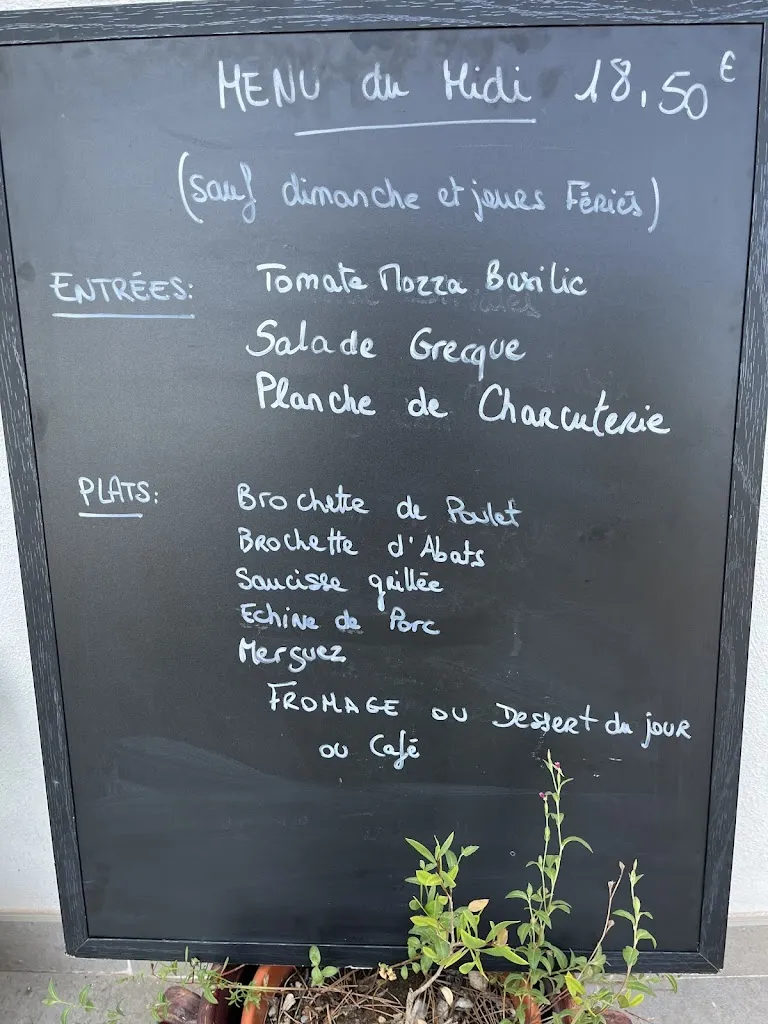 MENU du Midi 18,50€
(sauf dimanche et jours Fériés)
ENTRÉES: Tomate Mozza Basilic
Salade Grecque
Planche de Charcuterie
PLATS: Brochette de Poulet
Brochette d'Abats
Saucisse grillée
Echine de Porc
Merguez
FROMAGE ou Dessert du jour
ou Café